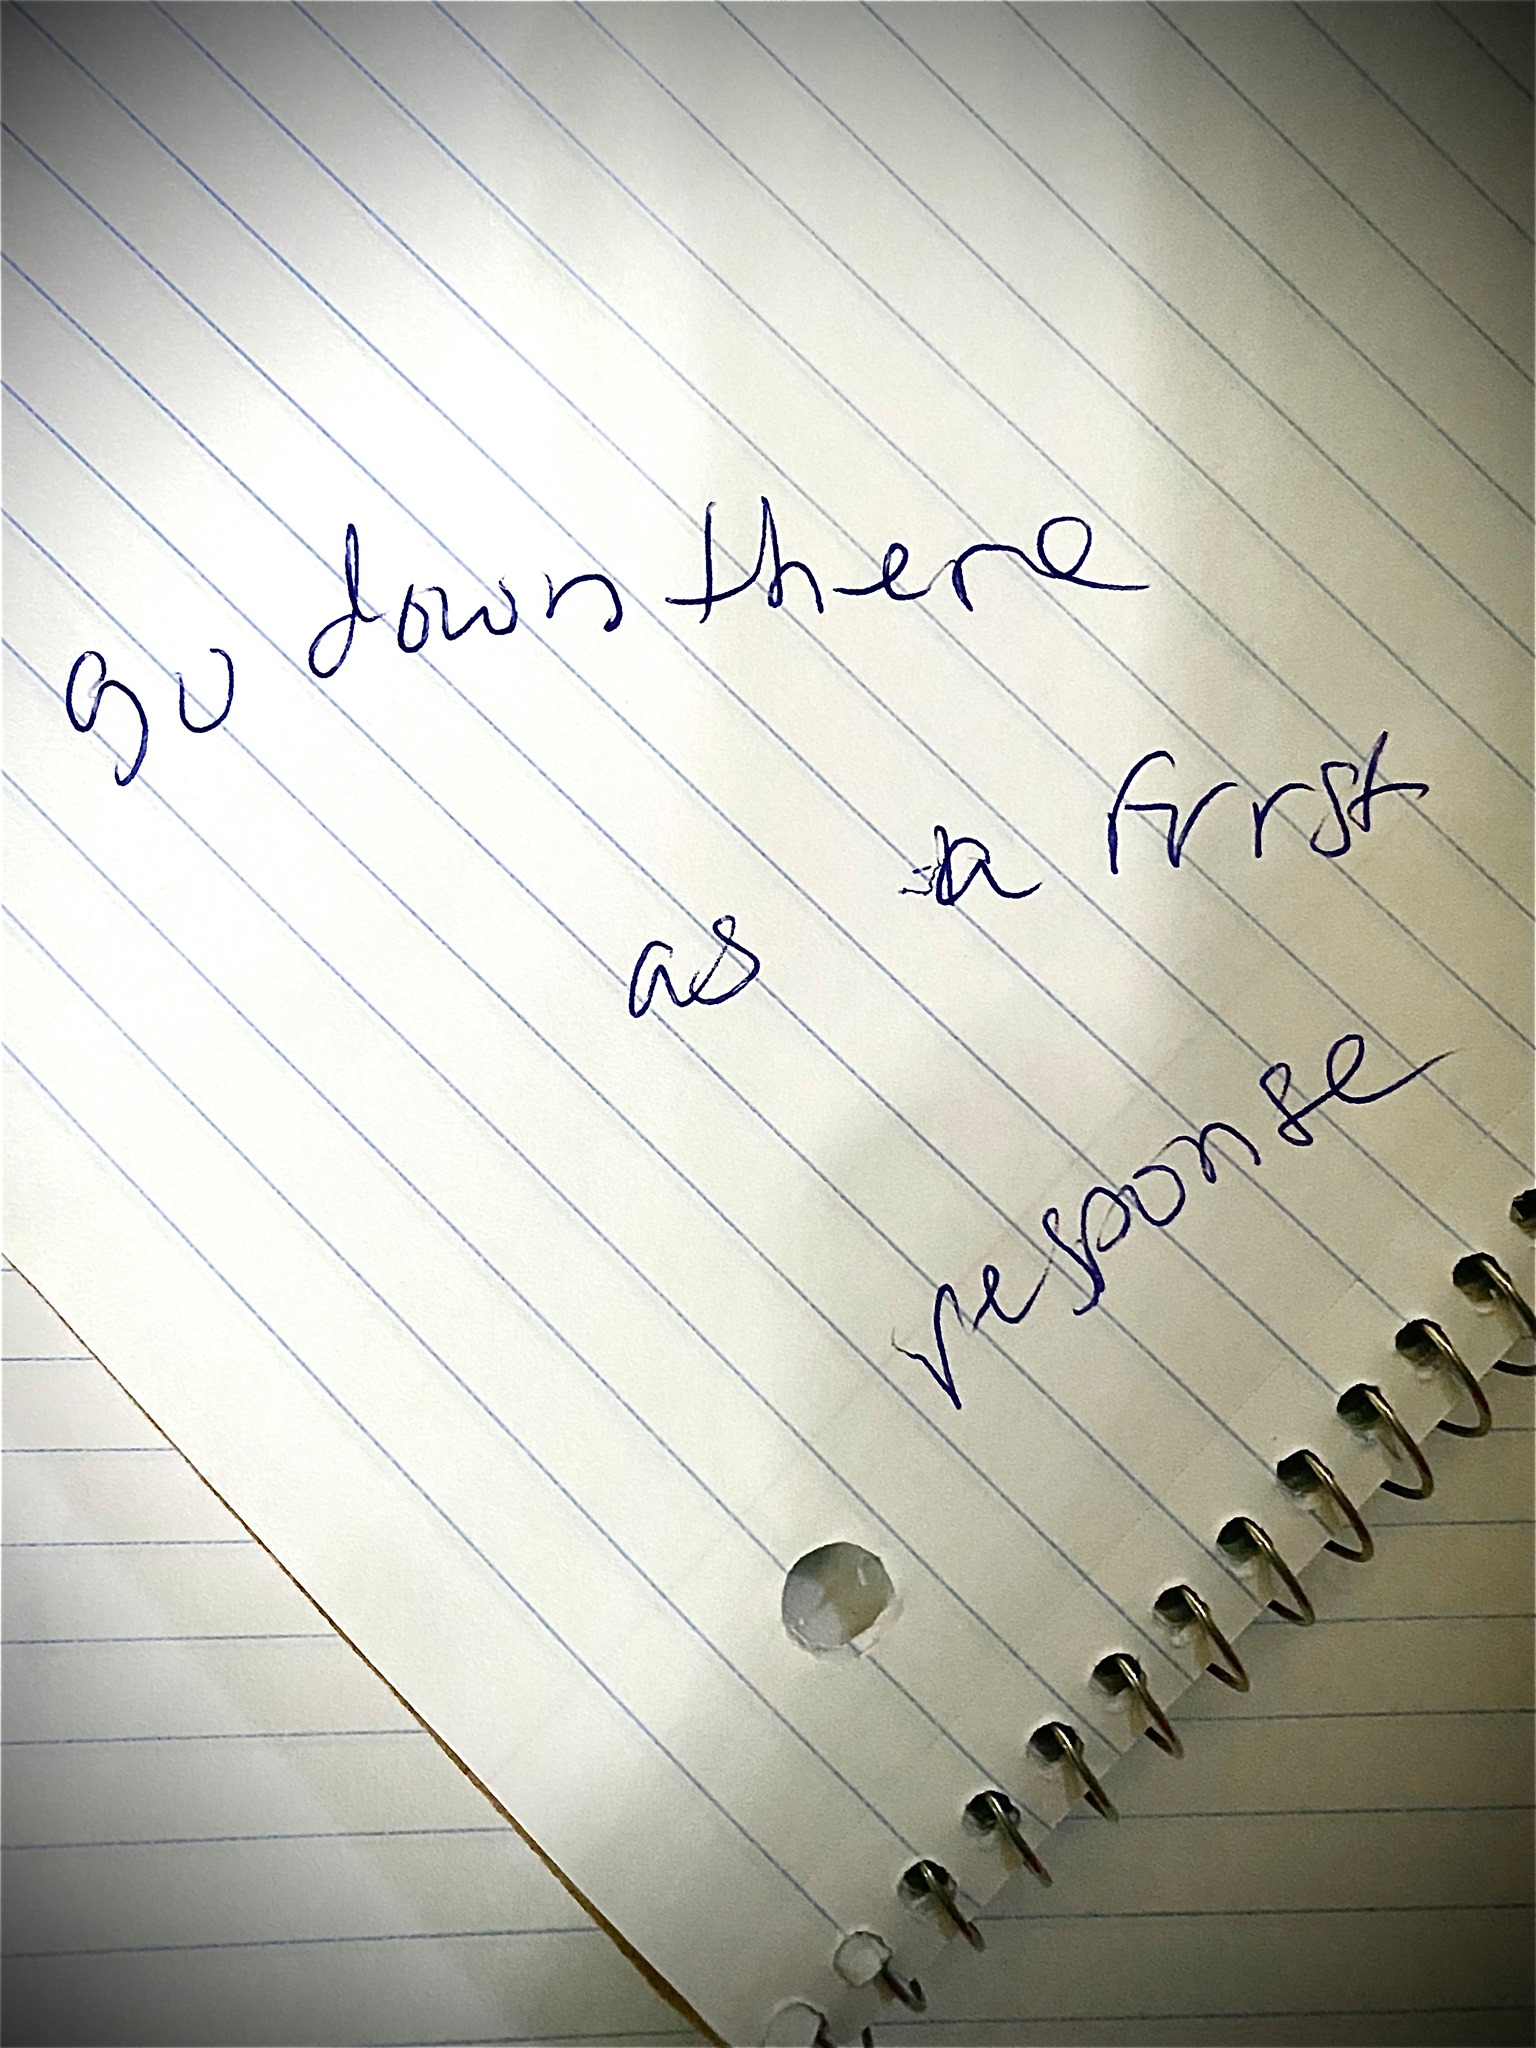 go down there
as a first
response